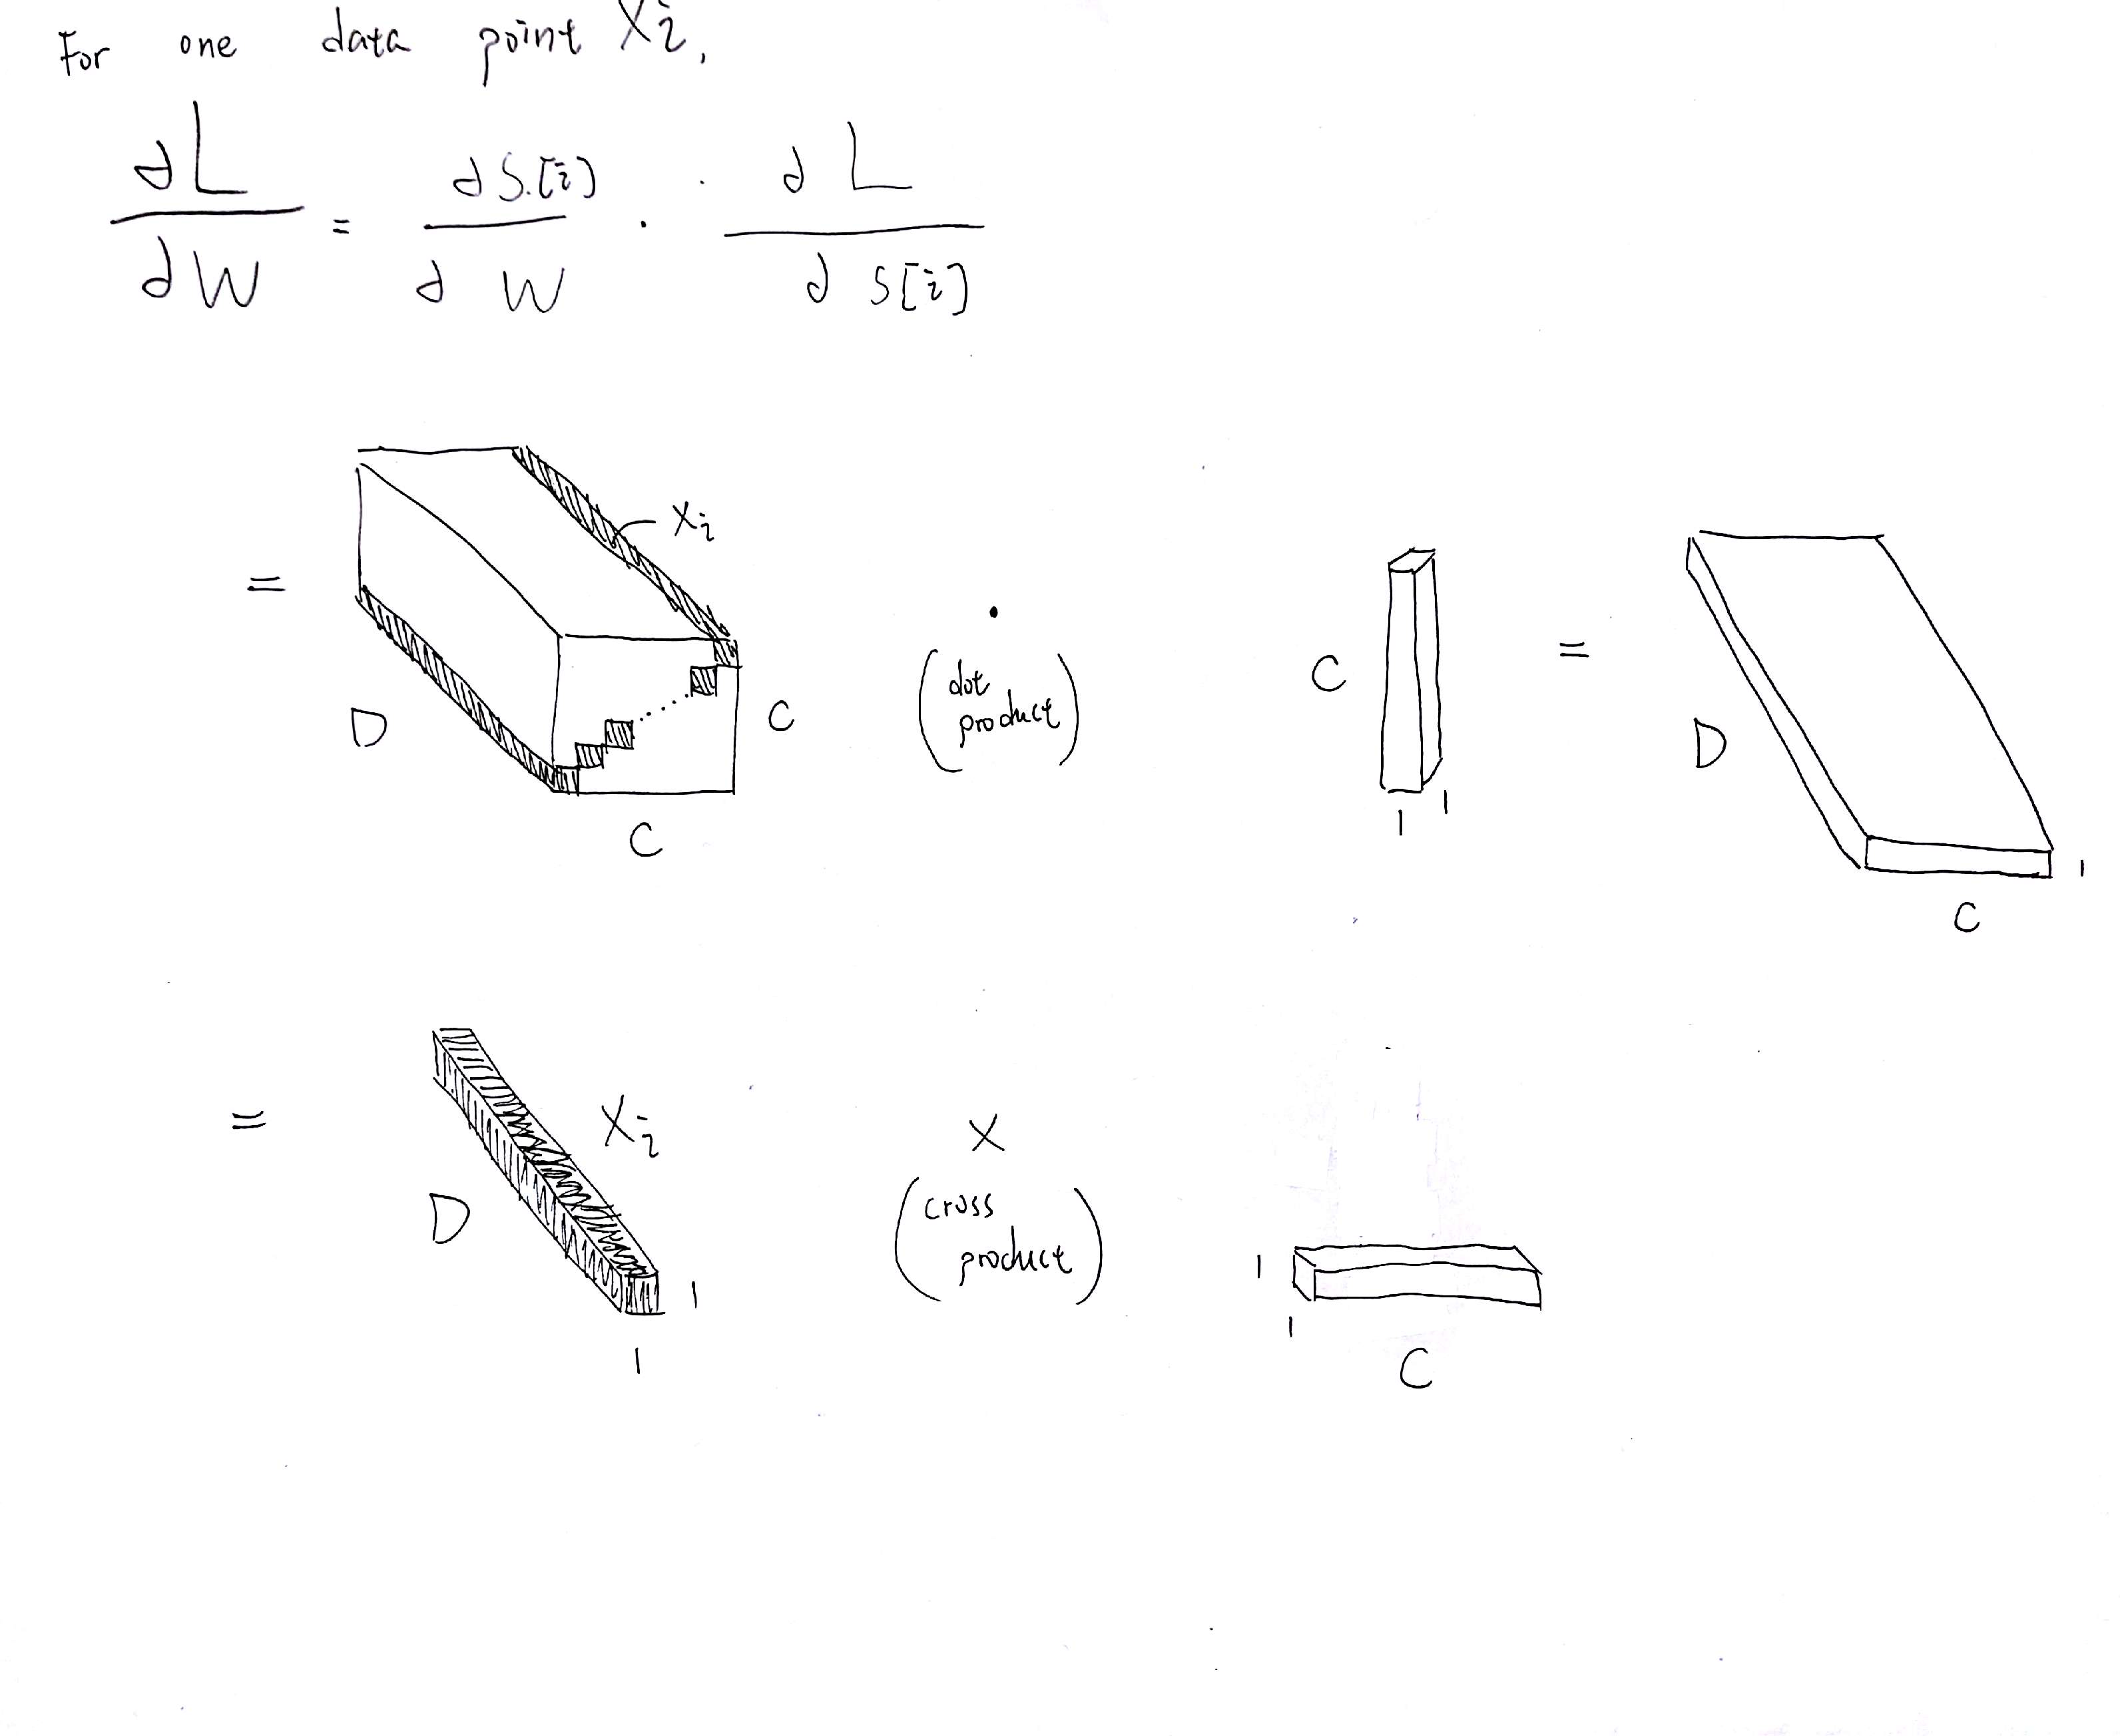 For one data point Xi,
∂L / ∂W = ∂S[i] / ∂W · ∂L / ∂S[i]
= D C C Xi · (dot product) C 1 1 = D C 1
= D Xi 1 1 × (cross product) 1 1 C